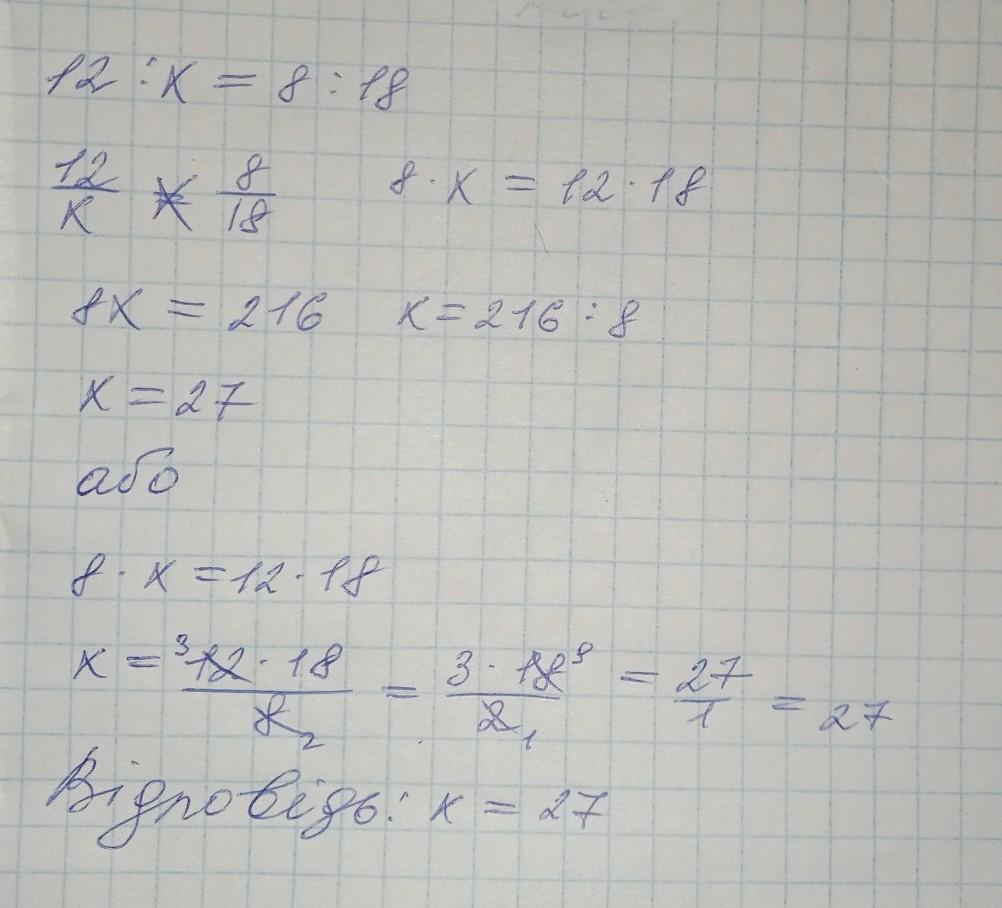 12 : x = 8 : 18
12/x = 8/18 8 · x = 12 · 18
8x = 216 x = 216 : 8
x = 27
або
8 · x = 12 · 18
x = ³12 · 18/8₂ = 3 · 18⁹/2₁ = 27/1 = 27
Відповідь: x = 27